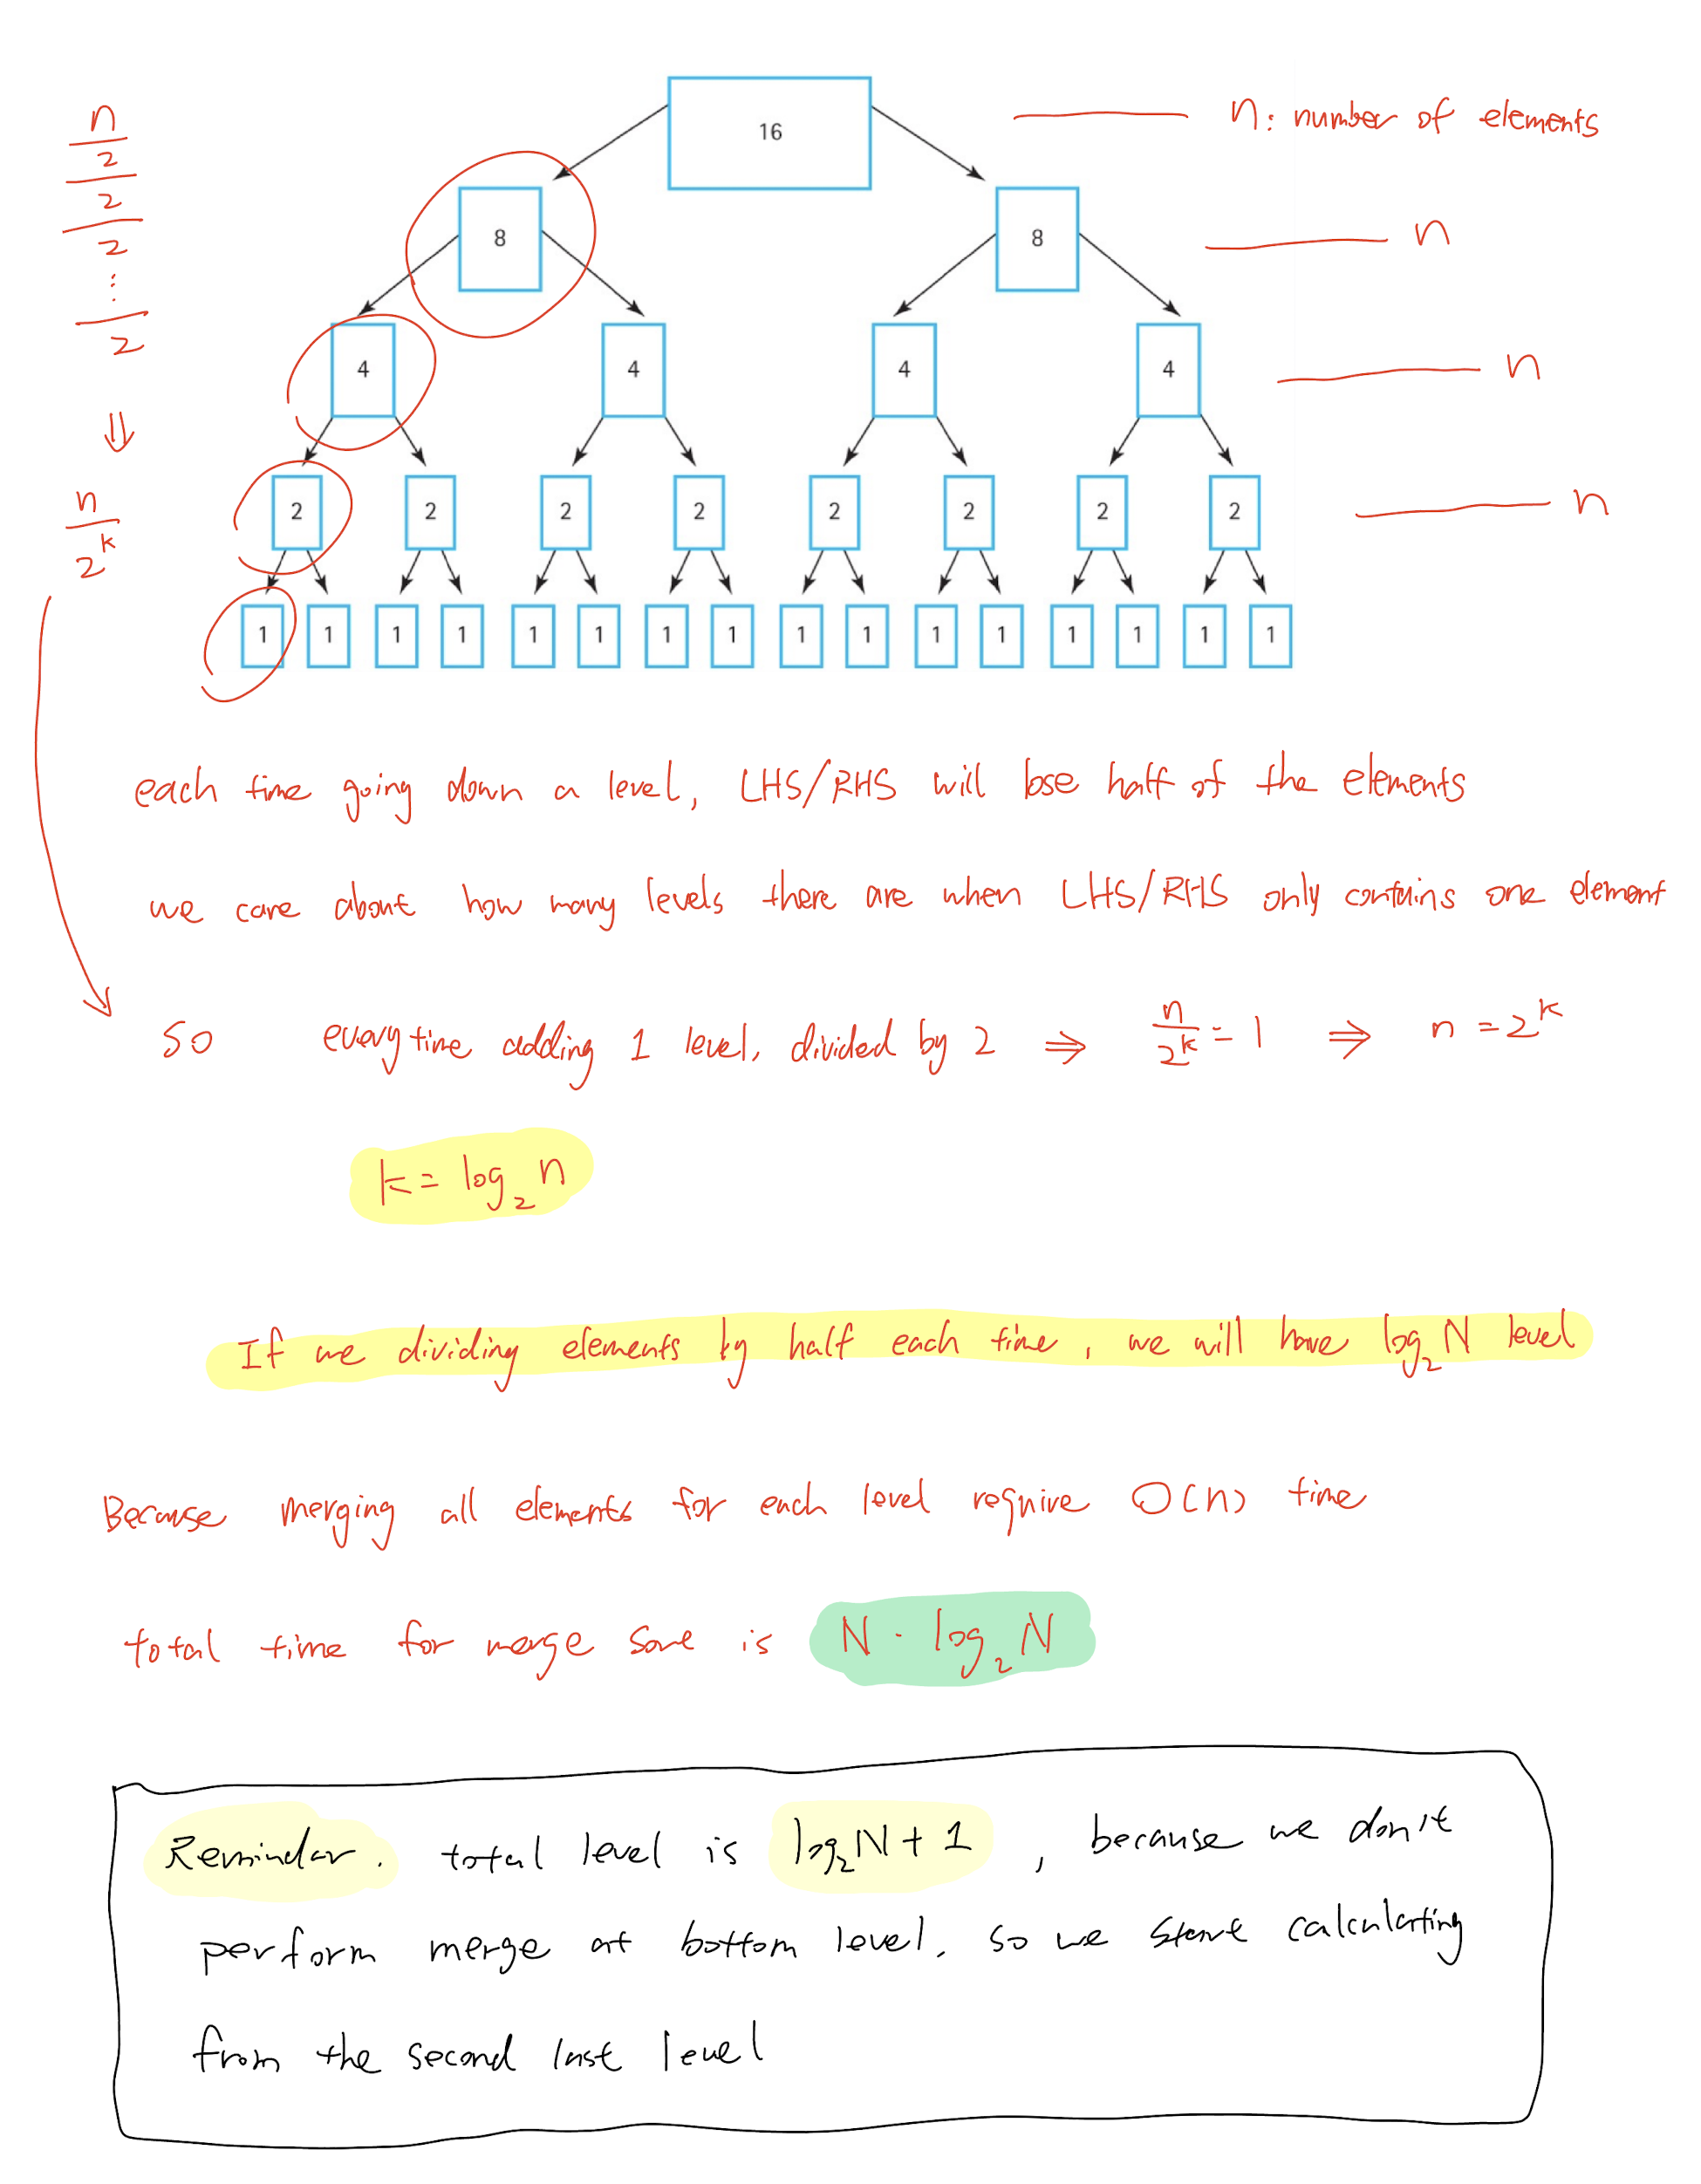 n/2/2/2/.../2
⇓
n/2^k
16
n: number of elements
8 8
n
4 4 4 4
n
2 2 2 2 2 2 2 2
n
1 1 1 1 1 1 1 1 1 1 1 1 1 1 1 1
each time going down a level, LHS/RHS will lose half of the elements
we care about how many levels there are when LHS/RHS only contains one element
so every time adding 1 level, divided by 2 ⇒ n/2^k = 1 ⇒ n = 2^k
k = log₂ n
If we dividing elements by half each time, we will have log₂N level
Because merging all elements for each level require O(n) time
total time for merge sort is N · log₂ N
Reminder. total level is log₂N + 1, because we don't
perform merge at bottom level. so we start calculating
from the second last level